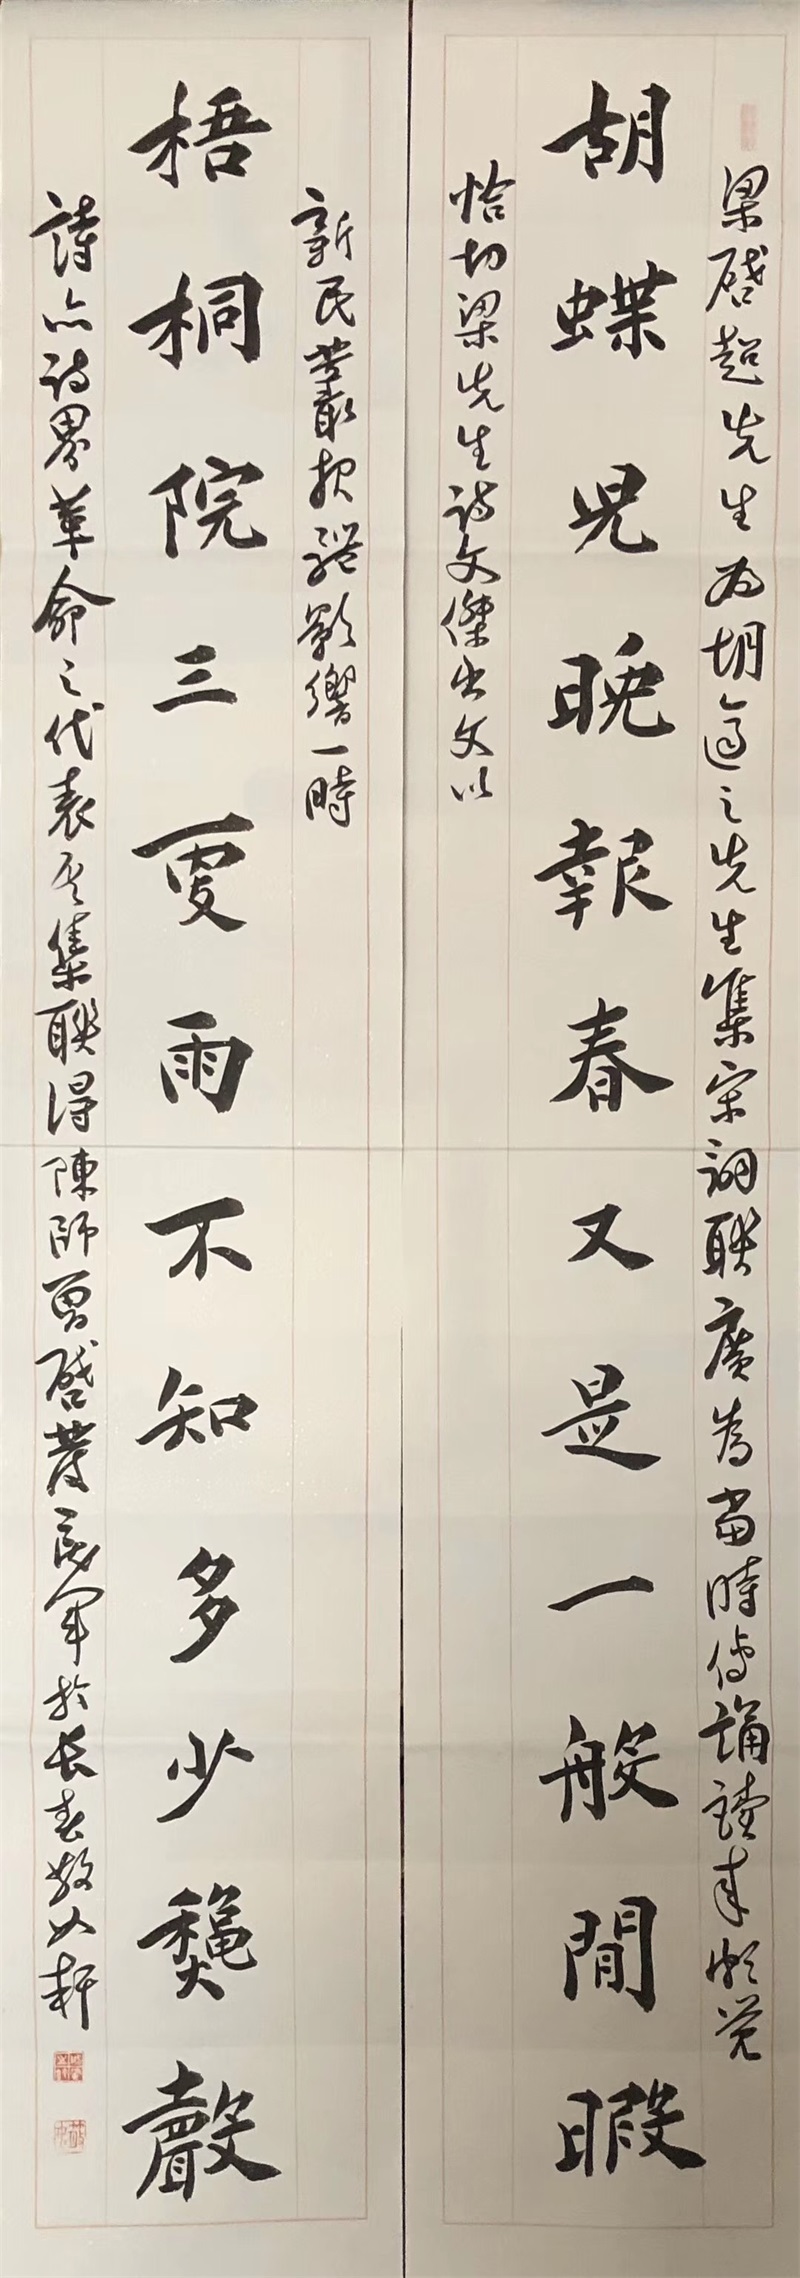 梁啓超先生為胡適之先生集宋詞聯廣為當時傳誦讀來頗覺
胡蝶兒晚報春又是一般閒暇
恰切梁先生詩文傑出文以
新民叢報
影響一時
梧桐院三更雨不知多少龝聲
詩亦詩界革命之代表
集聯得陳師曾啓發
軍於長春散
軒